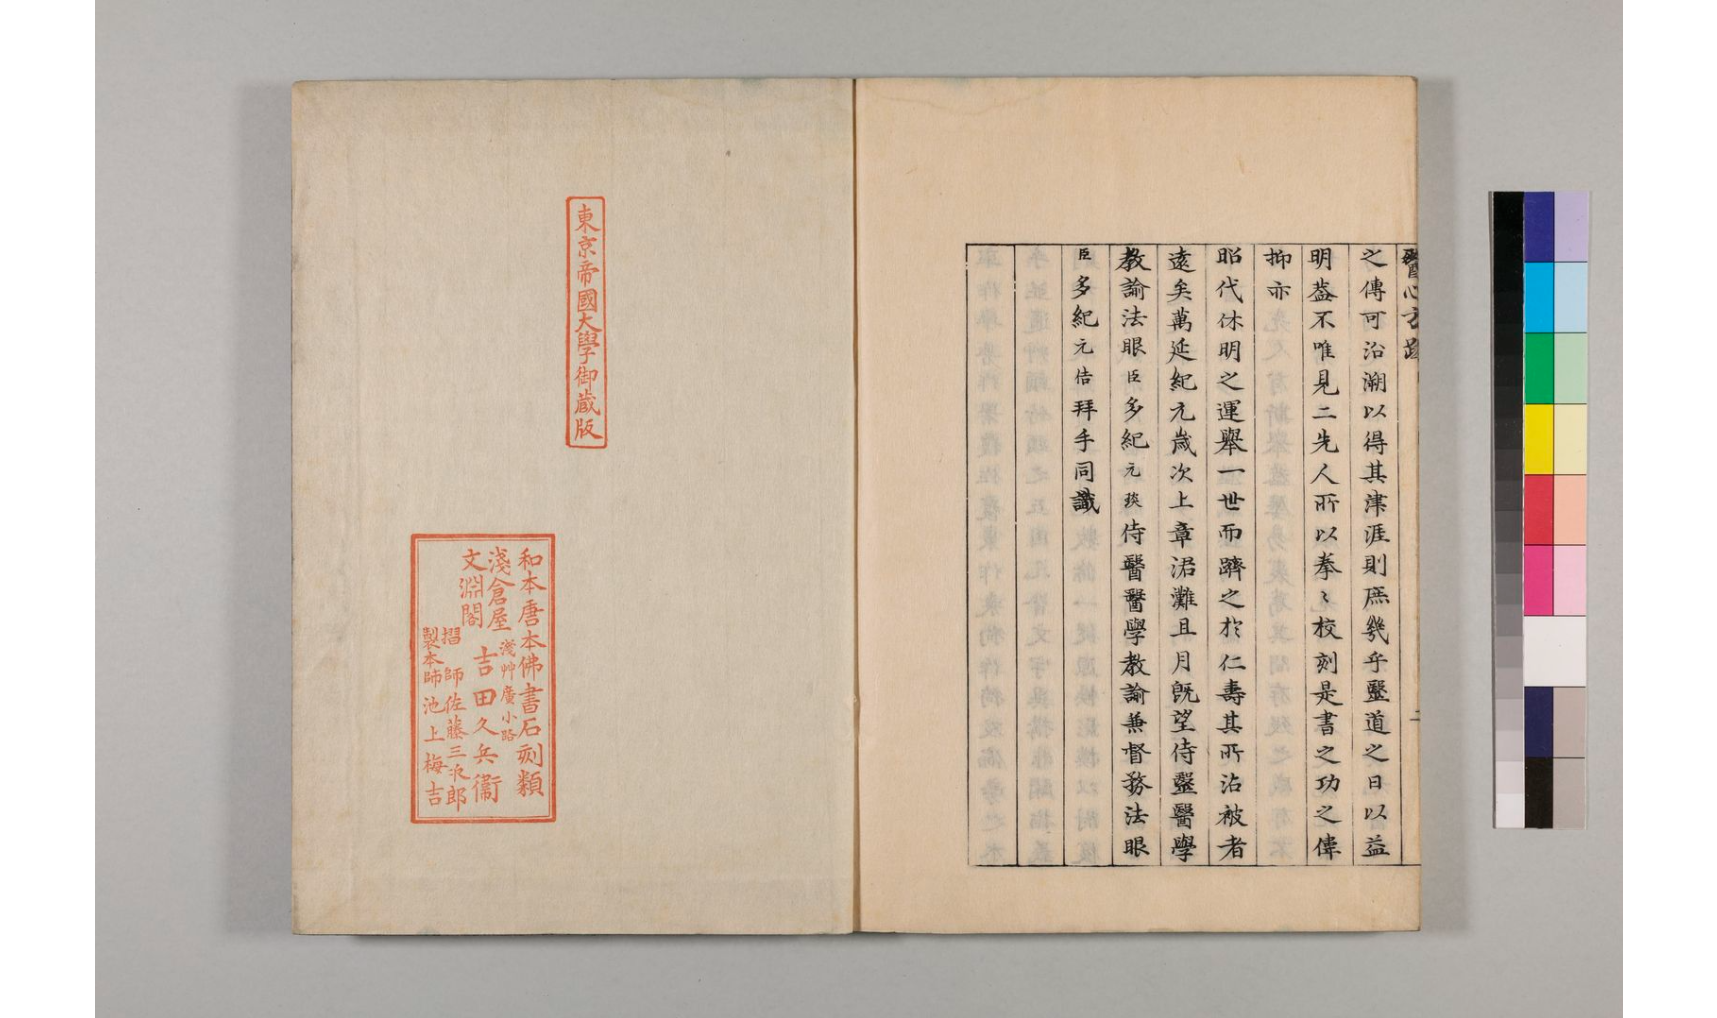 醫心方跋
之傳可沿溯以得其津涯則庶幾乎毉道之日以益
明葢不唯見二先人所以拳〻校刻是書之功之偉
抑亦
昭代休明之運舉一世而躋之於仁壽其所沾被者
遠矣萬延紀元歲次上章涒灘且月既望侍毉醫學
教諭法眼臣多紀元琰侍醫醫學教諭兼督務法眼
臣多紀元佶拜手同識
東京帝國大學御蔵版
和本唐本佛書石刻類
淺艸廣小路
淺倉屋 吉田久兵衞
文淵閣
摺師佐藤三次郎
製本師池上梅吉